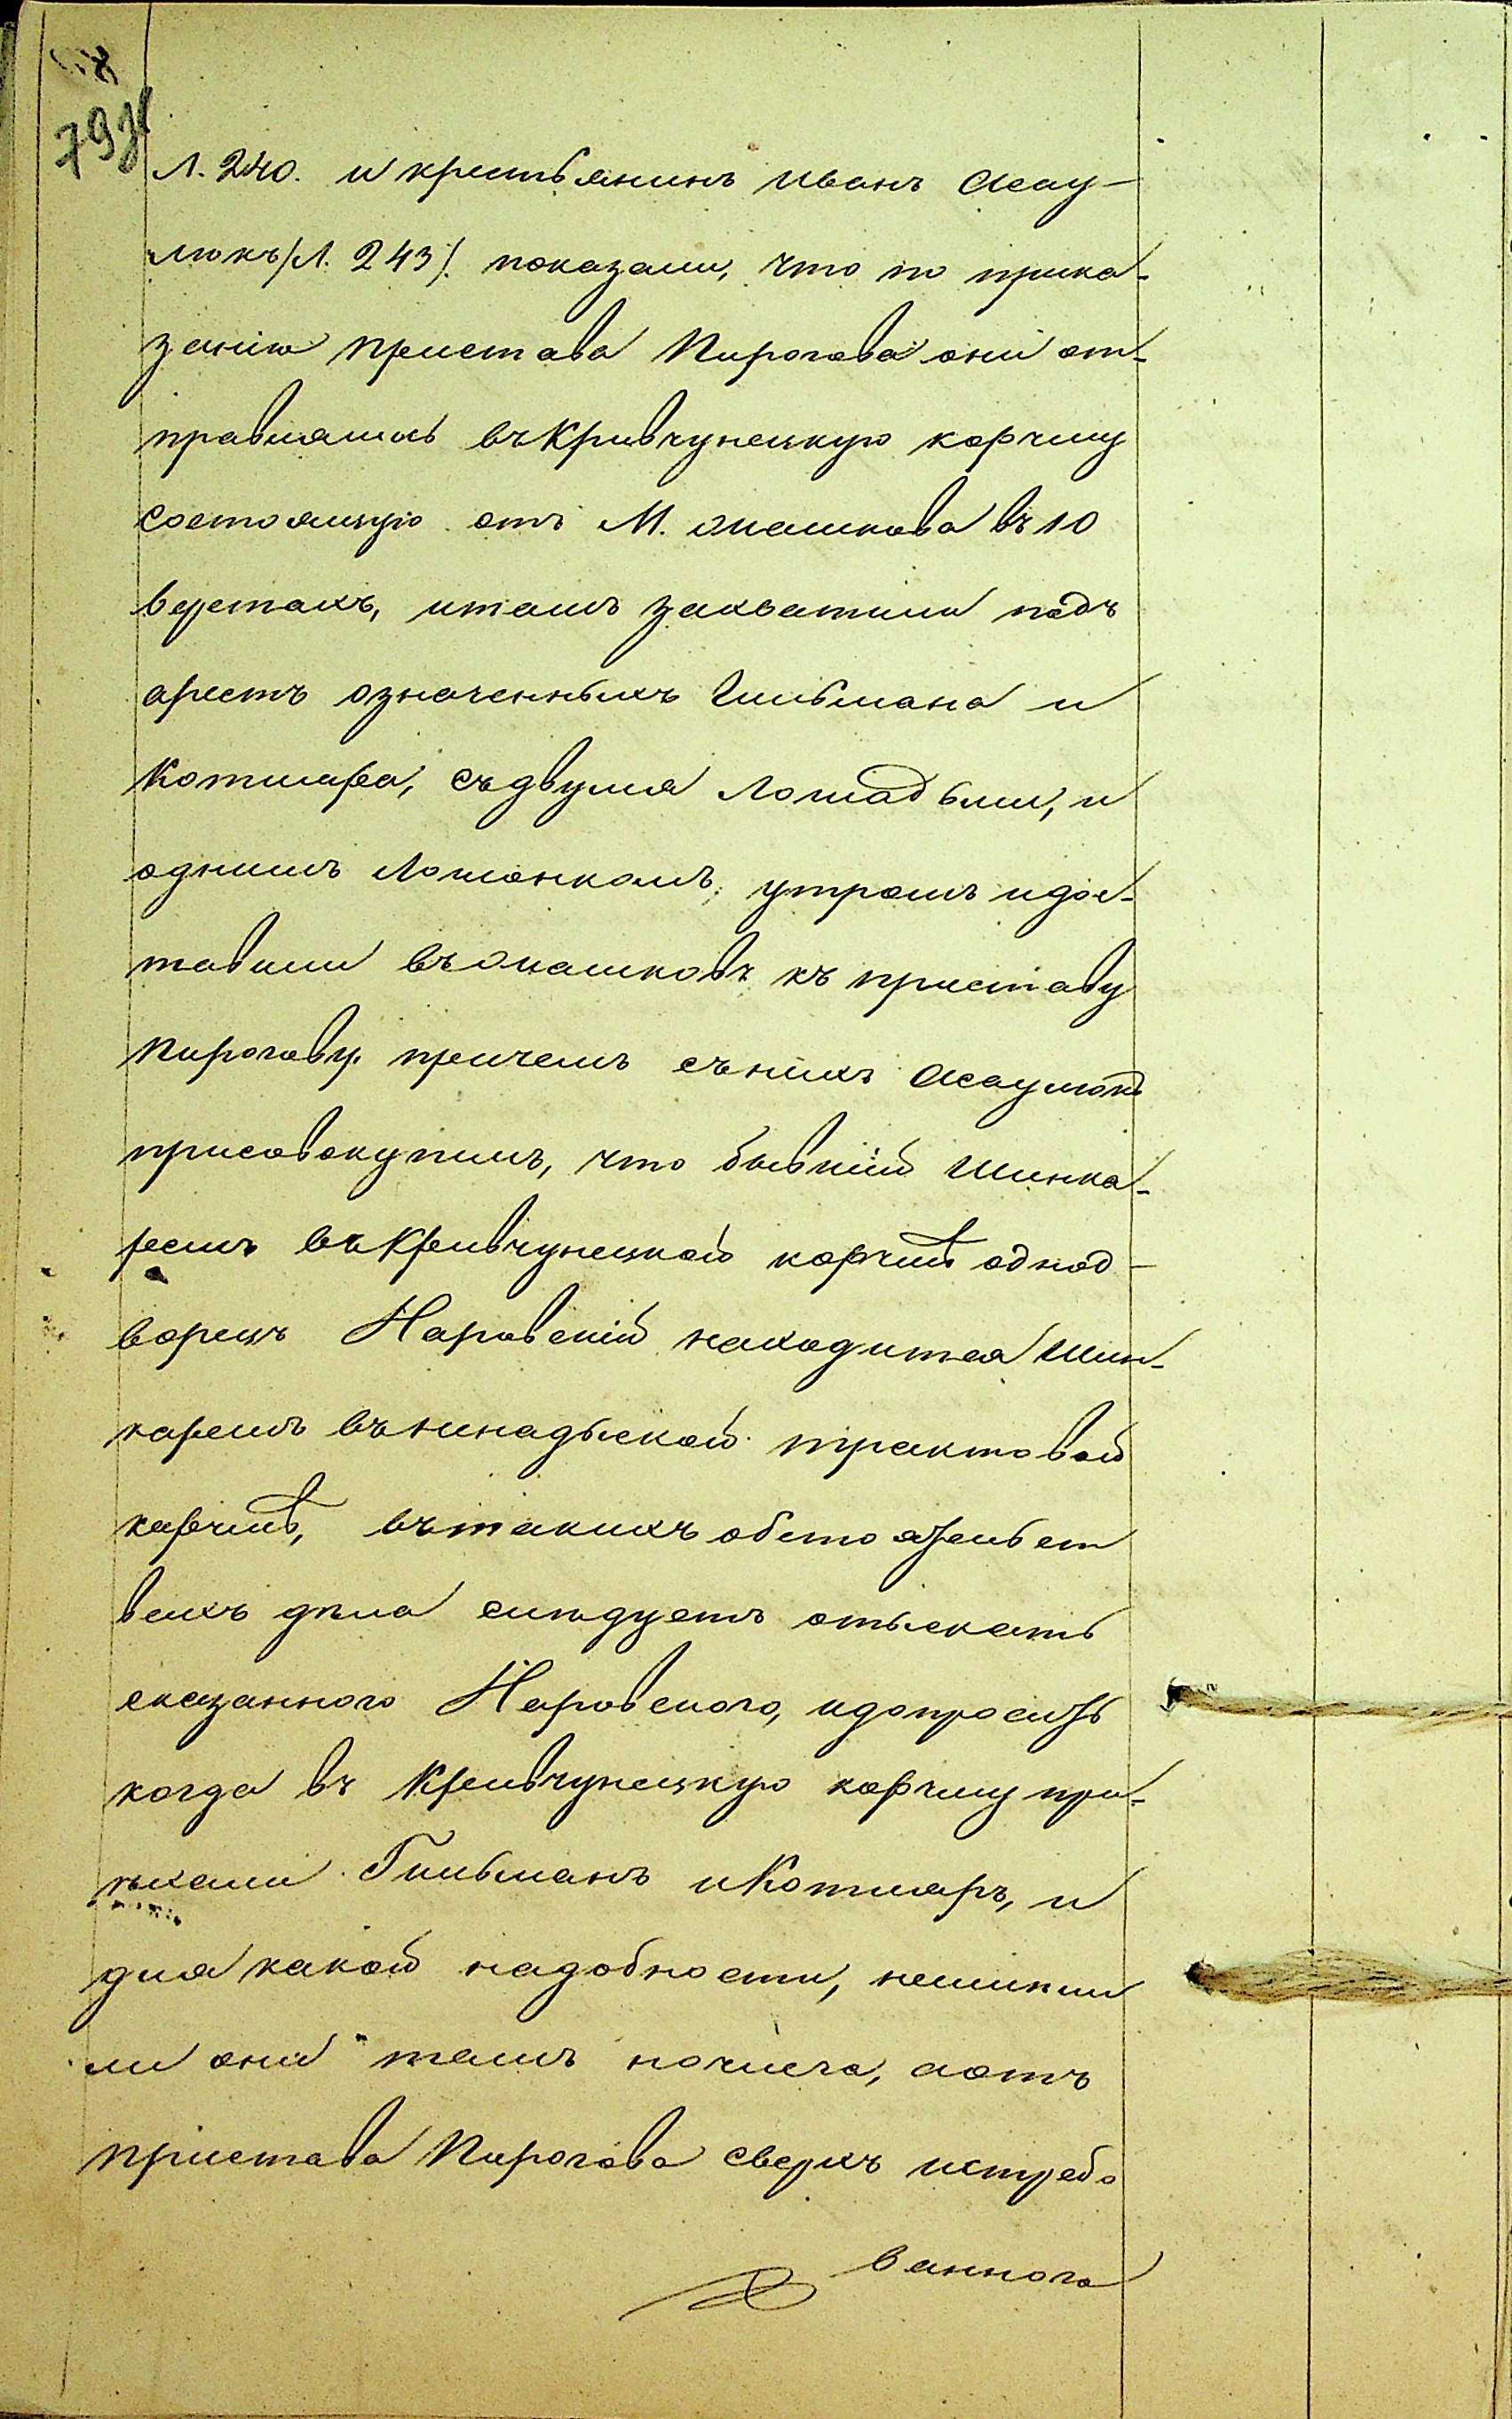 79
Л. 240. и крестьянинъ Иванъ Асау-
люкъ /Л. 243/. показали, что по прика-
занію Пристава Пирогова они от-
правлялись въ Кривчунецкую корчму
состоящую отъ М. Жашкова въ 10
верстахъ, и тамъ захватили подъ
арестъ означенныхъ Гильмана и
Котляра, съ двумя лошадьми, и
однимъ лошонкомъ, утромъ и дос-
тавили въ Жашковъ къ приставу
Пирогову. причемъ съ нихъ Асаулюкъ
присовокупилъ, что бывшій шинка-
ремъ въ Кривчунецкой корчмѣ однод-
ворецъ Наровскій находится шин-
каремъ въ трактовой
корчмѣ, въ такихъ обстоятельст
вахъ дѣла слѣдуетъ отыскать
сказанного Наровского, и допросить
когда въ Кривчунецкую корчму при-
ѣхали Гильманъ и Котляръ, и
для какой надобности, неимѣли
ли они тамъ ночлега, а отъ
пристава Пирогова сверхъ истребо
ванного